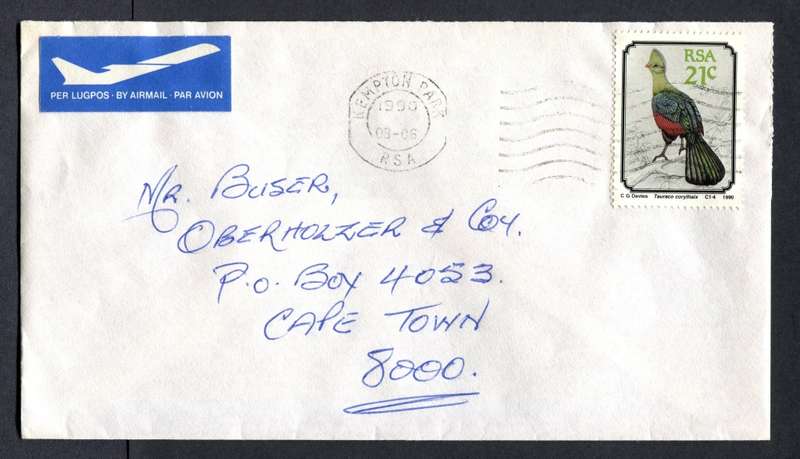 PER LUGPOS · BY AIRMAIL · PAR AVION
KEMPTON PARK
1990
08-06
RSA
RSA
21c
C G Davies Tauraco corythaix C1-4 1990
Mr. BUSER,
OBERHOLZER & Coy.
P.O. Box 4053.
CAPE TOWN
8000.